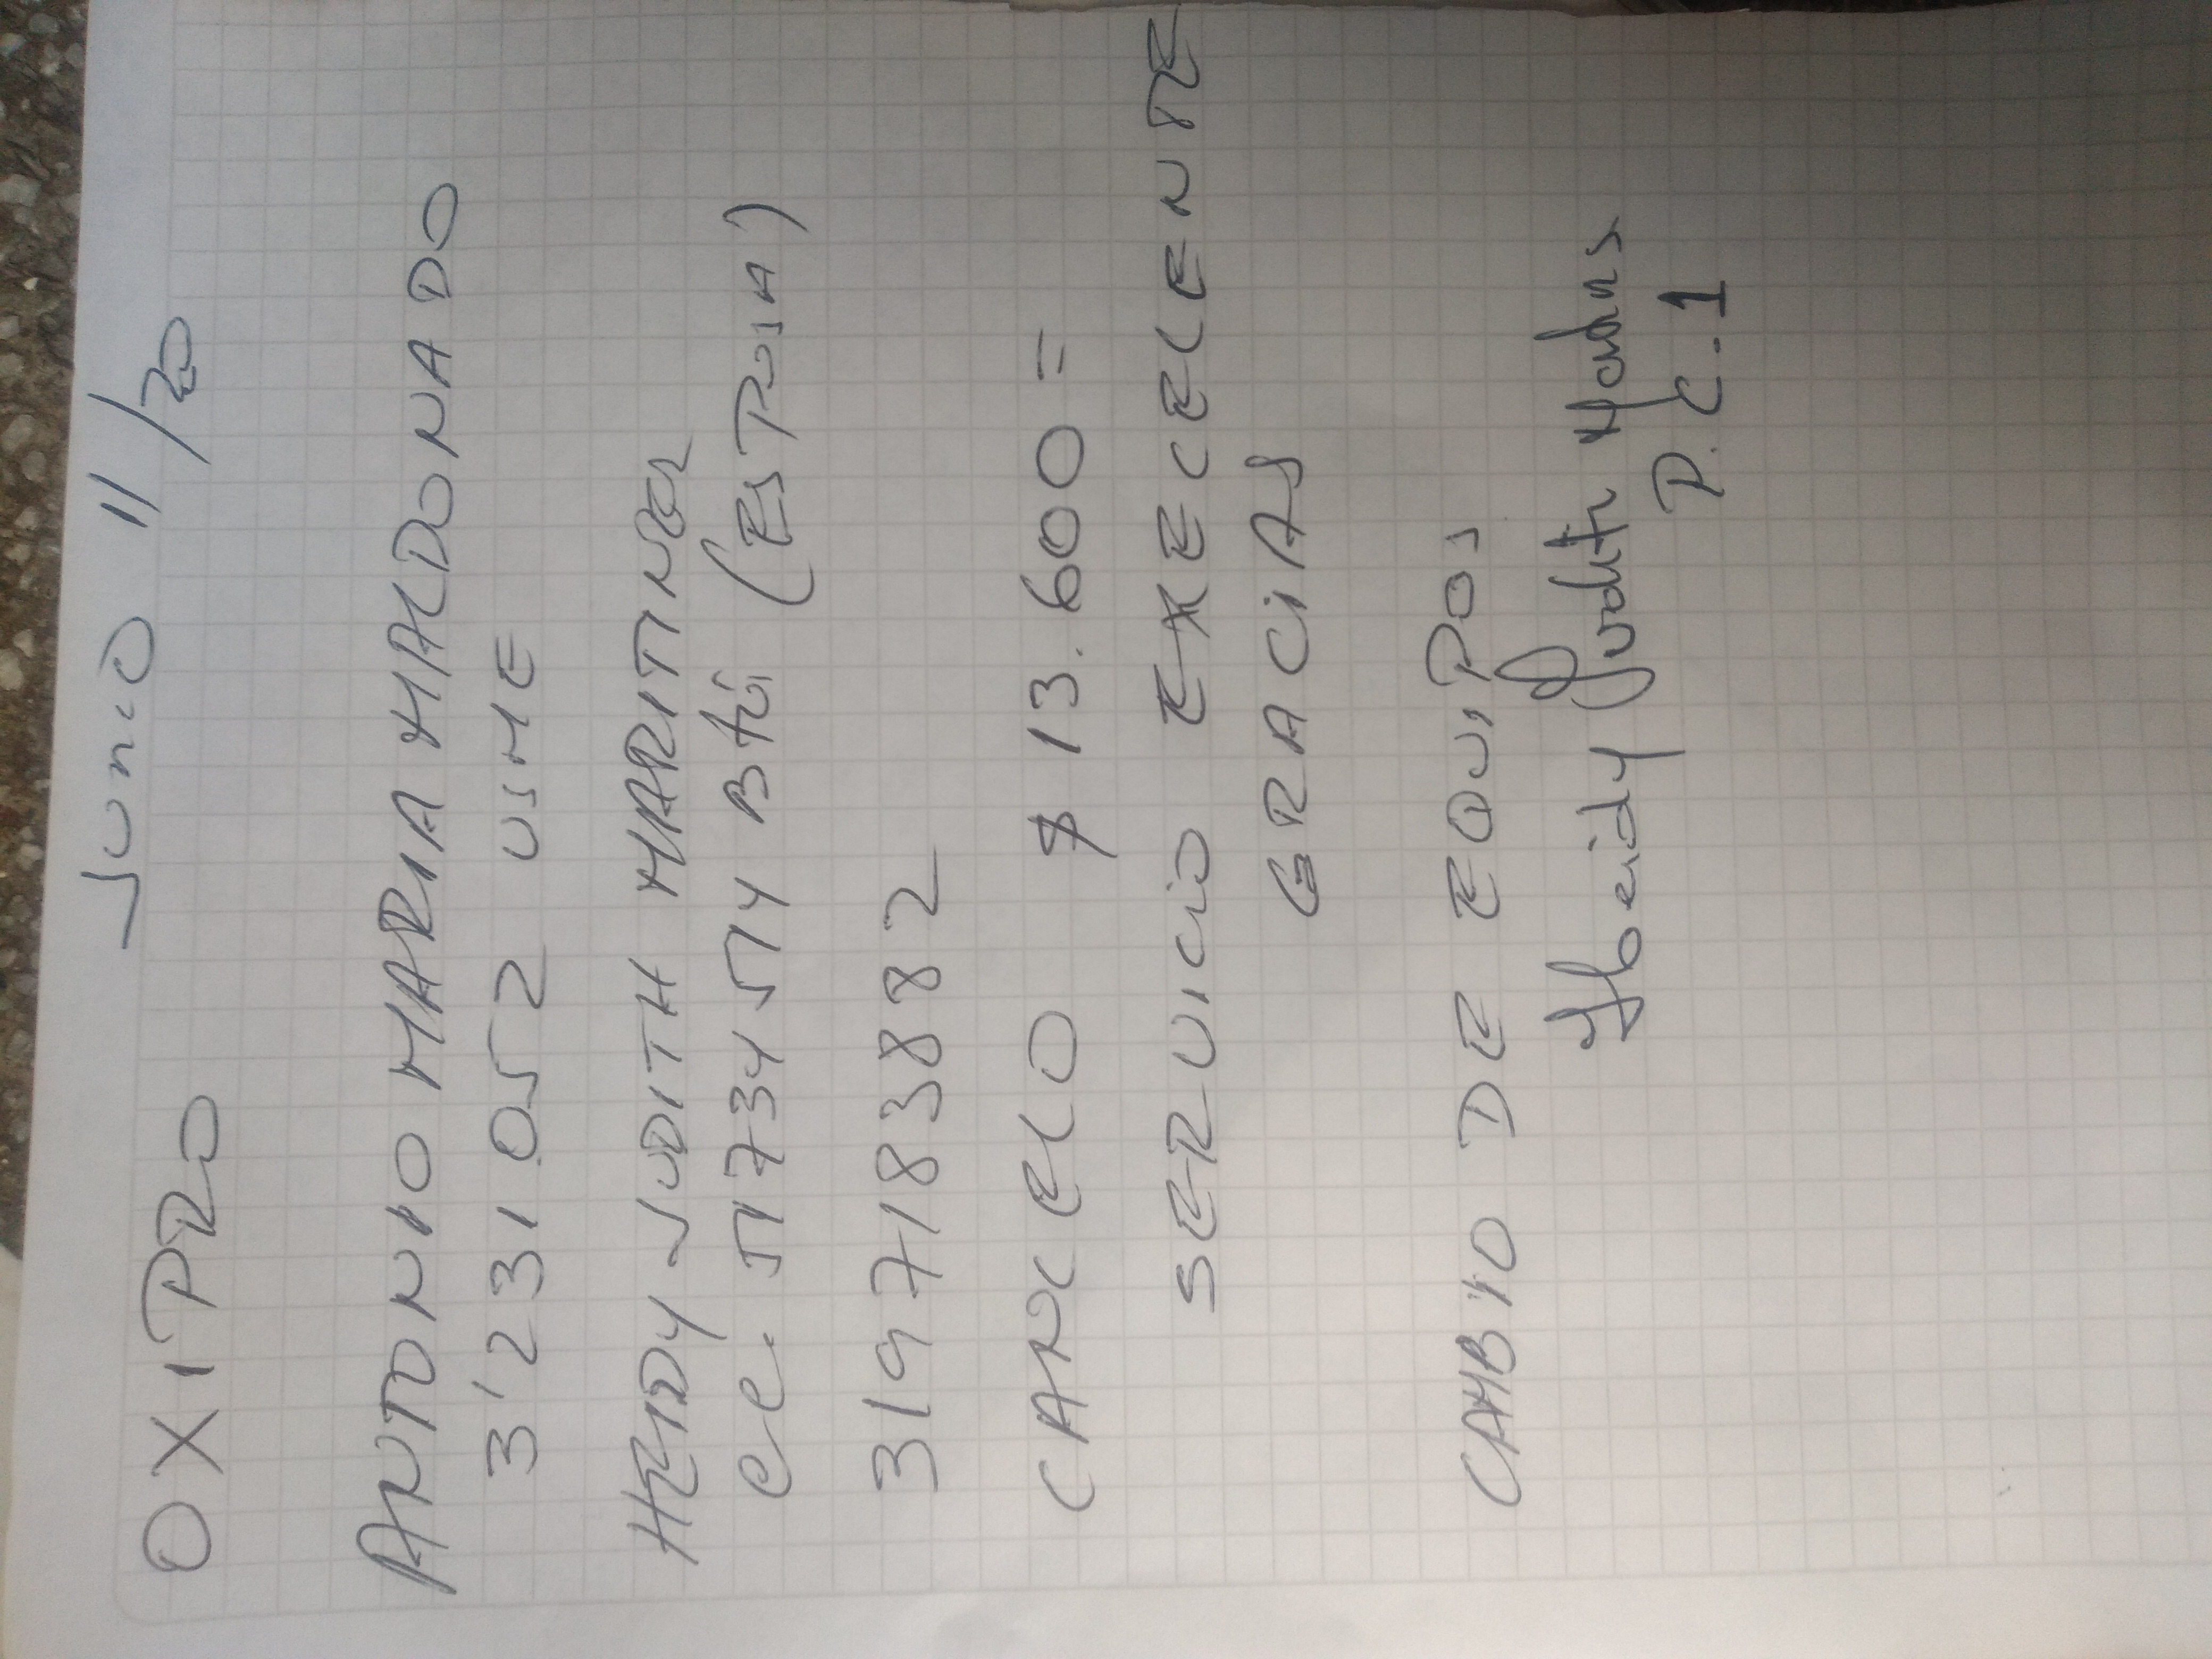 OXIPRO
JUNIO 11/20
ANTONIO MARIA MALDONADO
3'231.052 USME
HEIDY JUDITH MARTINEZ
CC. 51734514 Btá (ESPOSA)
3197183882
CANCELO $ 13.600=
SERVICIO EXECELENTE
GRACIAS
CAMBIO DE EQUIPOS
Heidy Judith
P.C.1